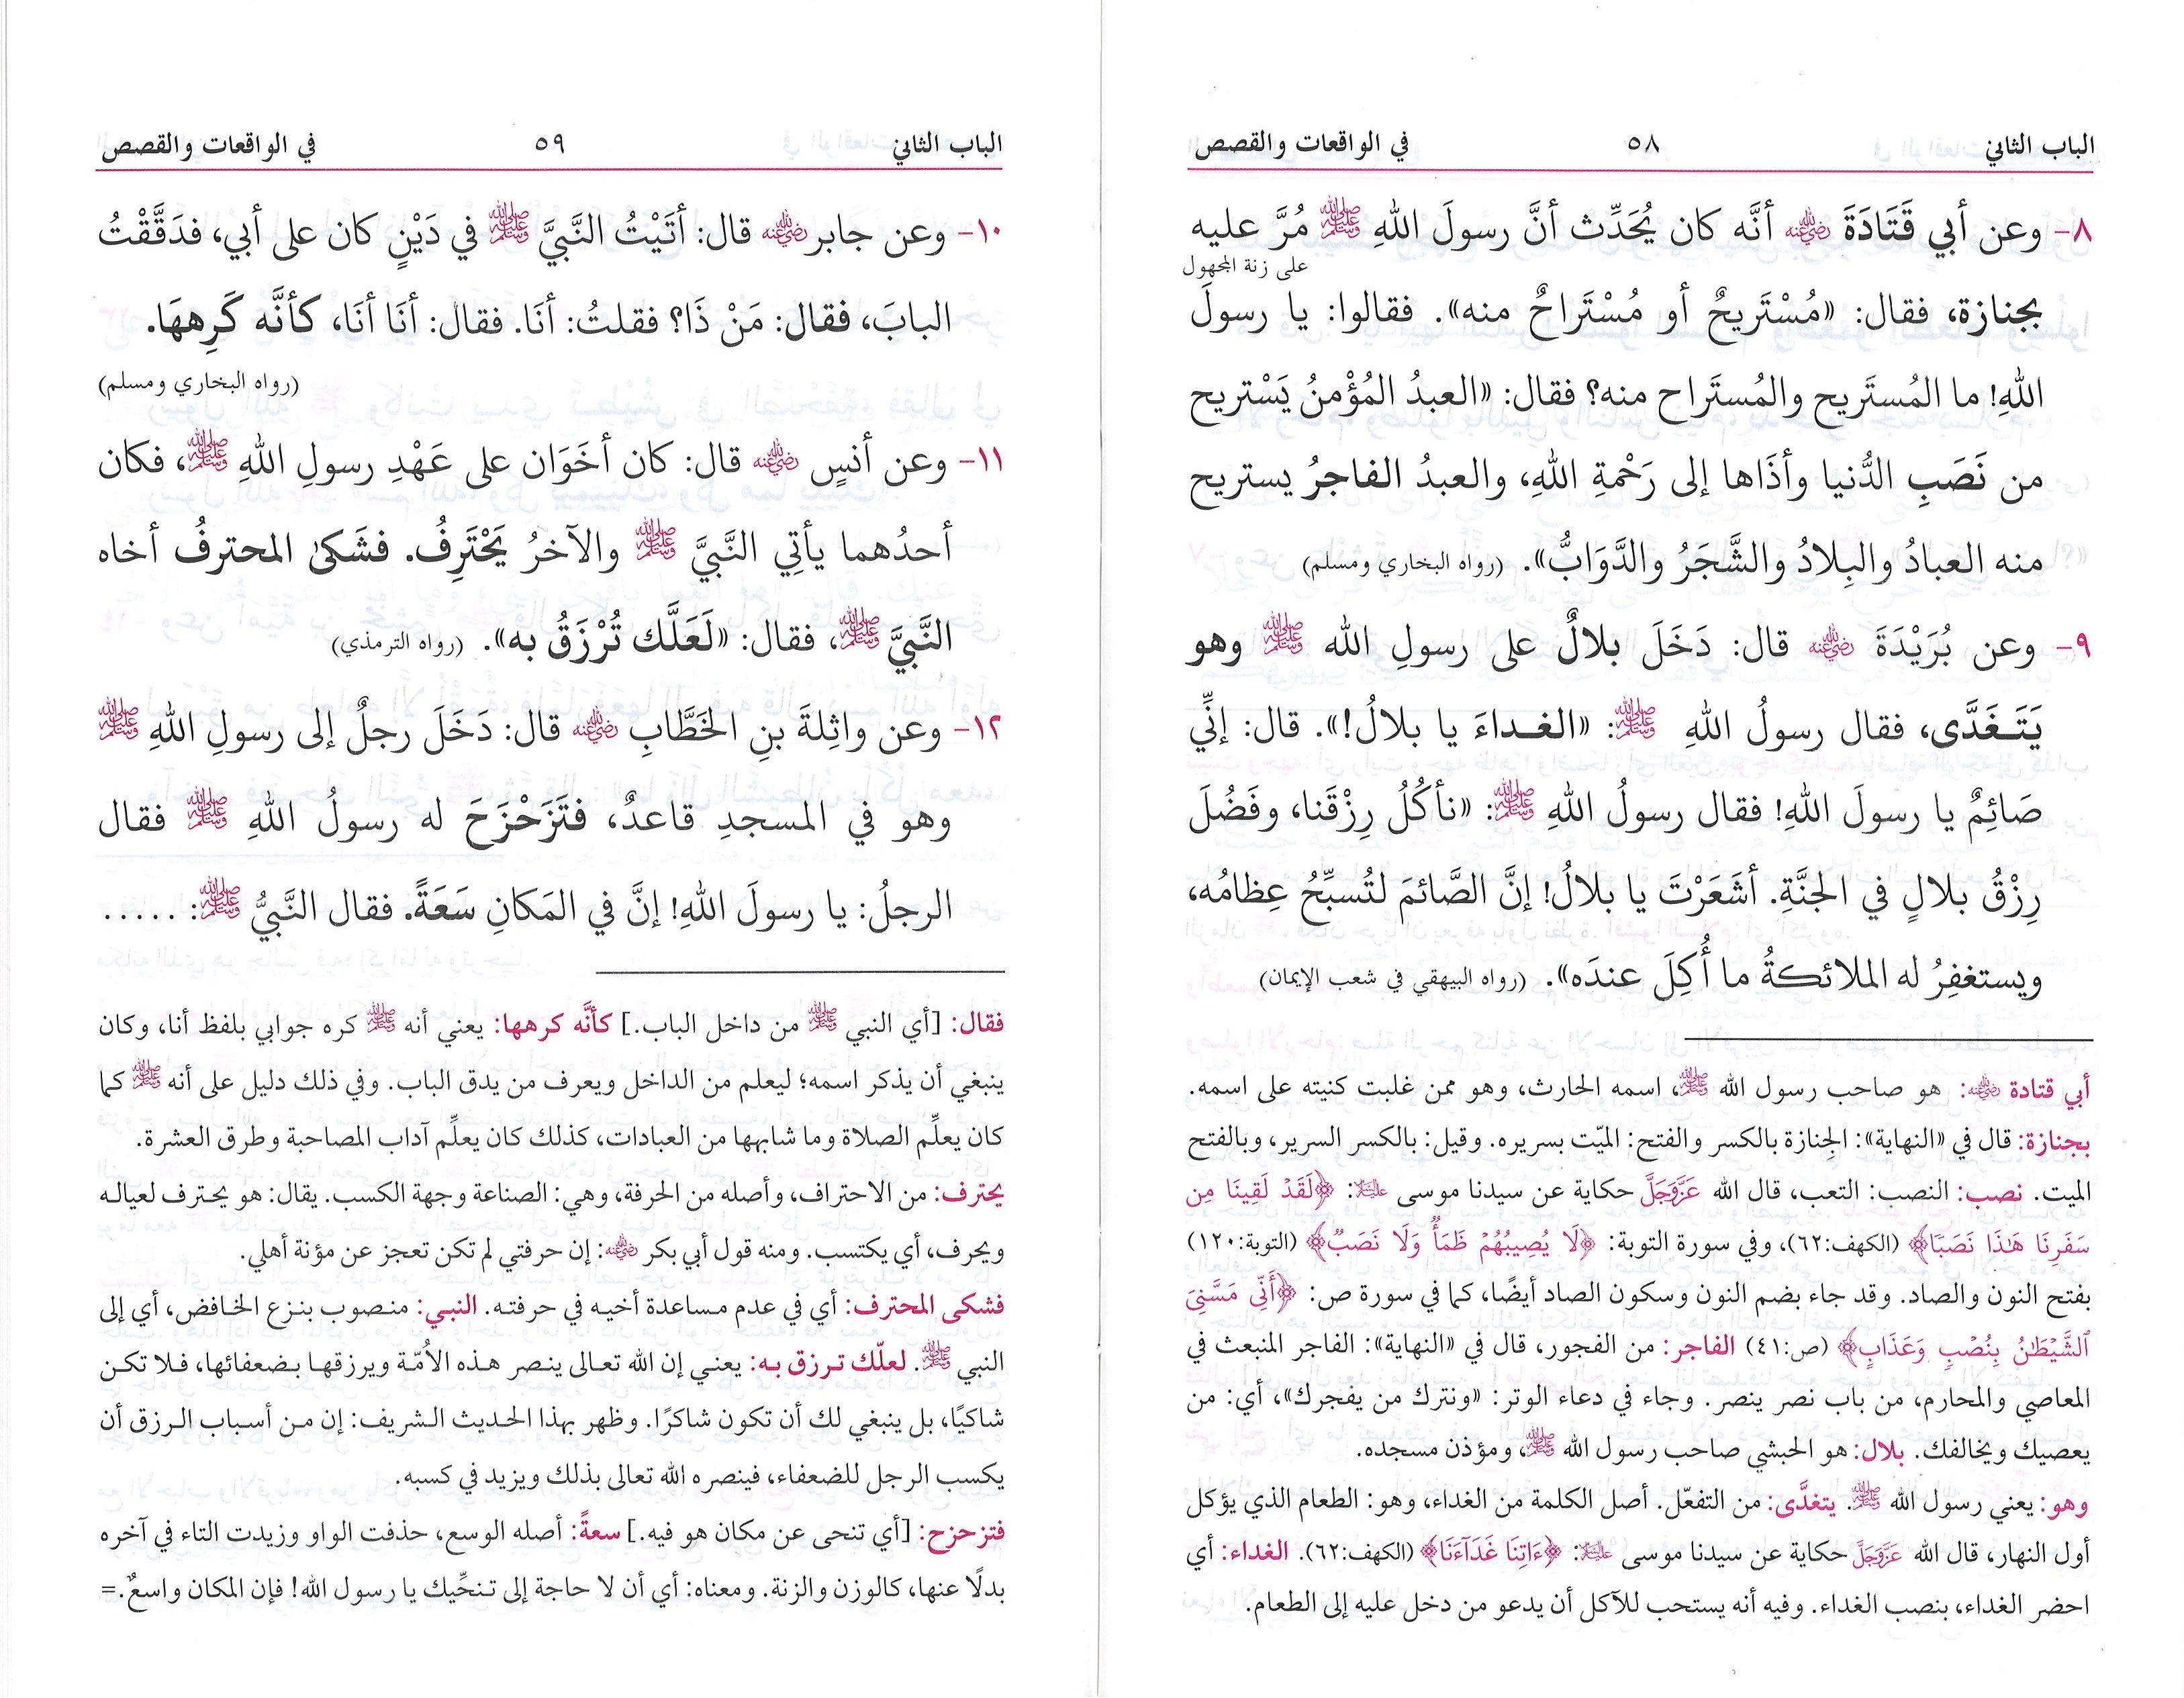 الباب الثاني ٥٨ في الواقعات والقصص
٨- وعن أبي قَتَادَةَ رضي الله عنه أنَّه كان يُحَدِّث أنَّ رسولَ اللهِ ﷺ مُرَّ عليه
على زنة المجهول
بجنازة، فقال: «مُسْتَريحٌ أو مُسْتَراحٌ منه». فقالوا: يا رسولَ
اللهِ! ما المُستَريح والمُستَراح منه؟ فقال: «العبدُ المُؤْمنُ يَسْتريح
من نَصَبِ الدُّنيا وأذَاها إلى رَحْمةِ اللهِ، والعبدُ الفاجرُ يستريح
منه العبادُ والبِلادُ والشَّجَرُ والدَّوَابُّ». (رواه البخاري ومسلم)
٩- وعن بُرَيْدَةَ رضي الله عنه قال: دَخَلَ بلالٌ على رسولِ الله ﷺ وهو
يَتَـغَدَّى، فقال رسولُ اللهِ ﷺ: «الغـداءَ يا بلالُ!». قال: إنِّي
صَائِمٌ يا رسولَ اللهِ! فقال رسولُ اللهِ ﷺ: «نأكُلُ رِزْقَنا، وفَضُلَ
رِزْقُ بلالٍ في الجنَّةِ. أشَعَرْتَ يا بلالُ! إنَّ الصَّائمَ لتُسبِّحُ عِظامُه،
ويستغفِرُ له الملائكةُ ما أُكِلَ عندَه». (رواه البيهقي في شعب الإيمان)
أبي قتادة رضي الله عنه: هو صاحب رسول الله ﷺ، اسمه الحارث، وهو ممن غلبت كنيته على اسمه.
بجنازة: قال في «النهاية»: الجِنازة بالكسر والفتح: الميّت بسريره. وقيل: بالكسر السرير، وبالفتح
الميت. نصب: النصب: التعب، قال الله عَزَّوَجَلَّ حكاية عن سيدنا موسى عليه السلام: ﴿لَقَدْ لَقِينَا مِن
سَفَرِنَا هَٰذَا نَصَبًا﴾ (الكهف:٦٢)، وفي سورة التوبة: ﴿لَا يُصِيبُهُمْ ظَمَأٌ وَلَا نَصَبٌ﴾ (التوبة:١٢٠)
بفتح النون والصاد. وقد جاء بضم النون وسكون الصاد أيضًا، كما في سورة ص: ﴿أَنِّي مَسَّنِيَ
ٱلشَّيْطَٰنُ بِنُصْبٍ وَعَذَابٍ﴾ (ص:٤١) الفاجر: من الفجور، قال في «النهاية»: الفاجر المنبعث في
المعاصي والمحارم، من باب نصر ينصر. وجاء في دعاء الوتر: «ونترك من يفجرك»، أي: من
يعصيك ويخالفك. بلال: هو الحبشي صاحب رسول الله ﷺ، ومؤذن مسجده.
وهو: يعني رسول الله ﷺ. يتغدَّى: من التفعّل. أصل الكلمة من الغداء، وهو: الطعام الذي يؤكل
أول النهار، قال الله عَزَّوَجَلَّ حكاية عن سيدنا موسى عليه السلام: ﴿ءَاتِنَا غَدَآءَنَا﴾ (الكهف:٦٢). الغداء: أي
احضر الغداء، بنصب الغداء. وفيه أنه يستحب للآكل أن يدعو من دخل عليه إلى الطعام.
الباب الثاني ٥٩ في الواقعات والقصص
١٠- وعن جابر رضي الله عنه قال: أتَيْتُ النَّبيَّ ﷺ في دَيْنٍ كان على أبي، فدَقَّقْتُ
البابَ، فقال: مَنْ ذَا؟ فقلتُ: أنَا. فقال: أنَا أنَا، كأنَّه كَرِههَا.
(رواه البخاري ومسلم)
١١- وعن أنسٍ رضي الله عنه قال: كان أخَوَان على عَهْدِ رسولِ اللهِ ﷺ، فكان
أحدُهما يأتِي النَّبيَّ ﷺ والآخرُ يَحْتَرِفُ. فشَكىٰ المحترفُ أخاه
النَّبيَّ ﷺ، فقال: «لَعَلَّك تُرْزَقُ به». (رواه الترمذي)
١٢- وعن واثِلةَ بنِ الخَطَّابِ رضي الله عنه قال: دَخَلَ رجلٌ إلى رسولِ اللهِ ﷺ
وهو في المسجدِ قاعدٌ، فتَزَحْزَحَ له رسولُ اللهِ ﷺ فقال
الرجلُ: يا رسولَ اللهِ! إنَّ في المَكانِ سَعَةً. فقال النَّبيُّ ﷺ: .....
فقال: [أي النبي ﷺ من داخل الباب.] كأنَّه كرهها: يعني أنه ﷺ كره جوابي بلفظ أنا، وكان
ينبغي أن يذكر اسمه؛ ليعلم من الداخل ويعرف من يدق الباب. وفي ذلك دليل على أنه ﷺ كما
كان يعلِّم الصلاة وما شابهها من العبادات، كذلك كان يعلِّم آداب المصاحبة وطرق العشرة.
يحترف: من الاحتراف، وأصله من الحرفة، وهي: الصناعة وجهة الكسب. يقال: هو يحترف لعياله
ويحرف، أي يكتسب. ومنه قول أبي بكر رضي الله عنه: إن حرفتي لم تكن تعجز عن مؤنة أهلي.
فشكى المحترف: أي في عدم مساعدة أخيه في حرفته. النبي: منصوب بنزع الخافض، أي إلى
النبي ﷺ. لعلّك ترزق به: يعني إن الله تعالى ينصر هذه الأُمّة ويرزقها بضعفائها، فلا تكن
شاكيًا، بل ينبغي لك أن تكون شاكرًا. وظهر بهذا الحديث الشريف: إن من أسباب الرزق أن
يكسب الرجل للضعفاء، فينصره الله تعالى بذلك ويزيد في كسبه.
فتزحزح: [أي تنحى عن مكان هو فيه.] سعةً: أصله الوسع، حذفت الواو وزيدت التاء في آخره
بدلًا عنها، كالوزن والزنة. ومعناه: أي أن لا حاجة إلى تنحِّيك يا رسول الله! فإن المكان واسعٌ.=